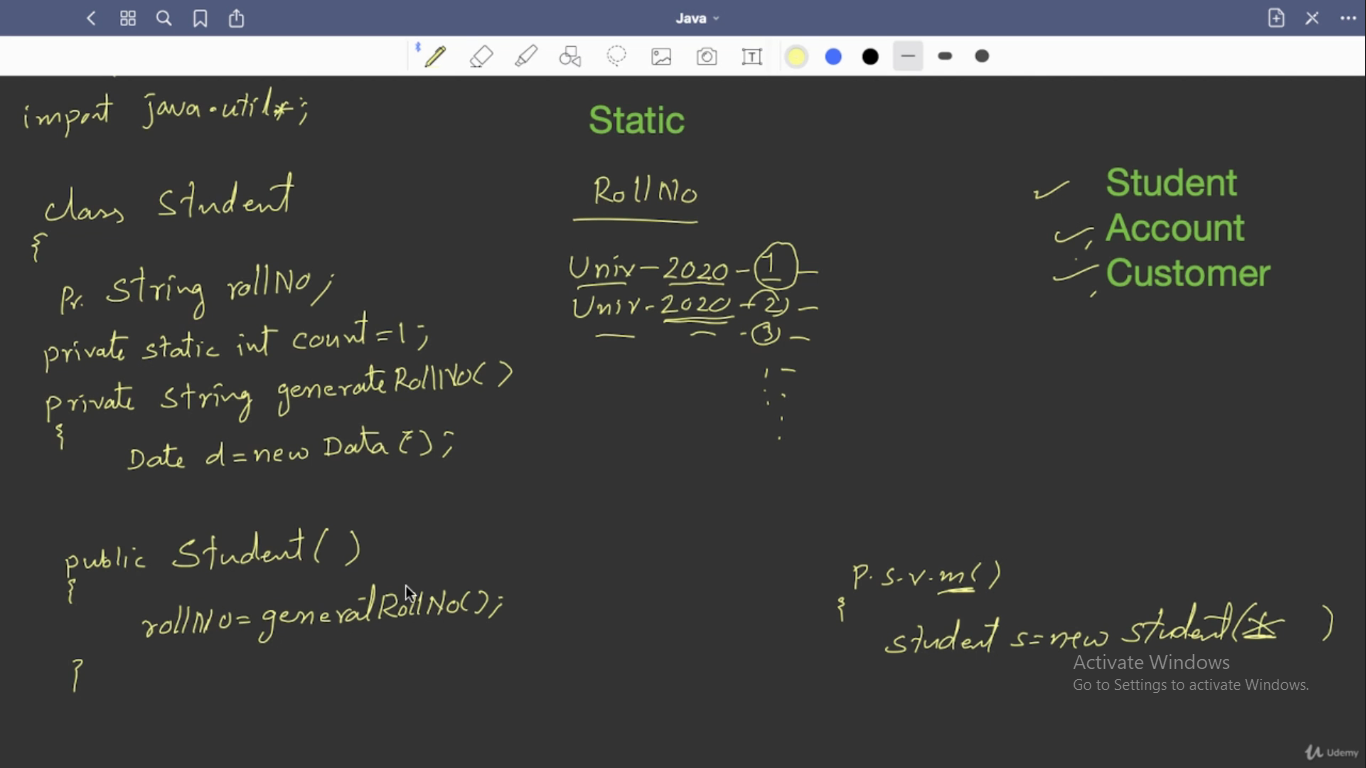 Java
import java.util*;
Static
class Student
{
Pr. String rollNo;
private static int count=1;
private String generateRollNo()
{
Date d=new Data();
public Student()
{
rollNo=generatRollNo();
}
RollNo
Univ-2020-1-
Univ-2020-2-
-3-
Student
Account
Customer
P.s.v.m()
{
student s=new student( )
Activate Windows
Go to Settings to activate Windows.
Udemy